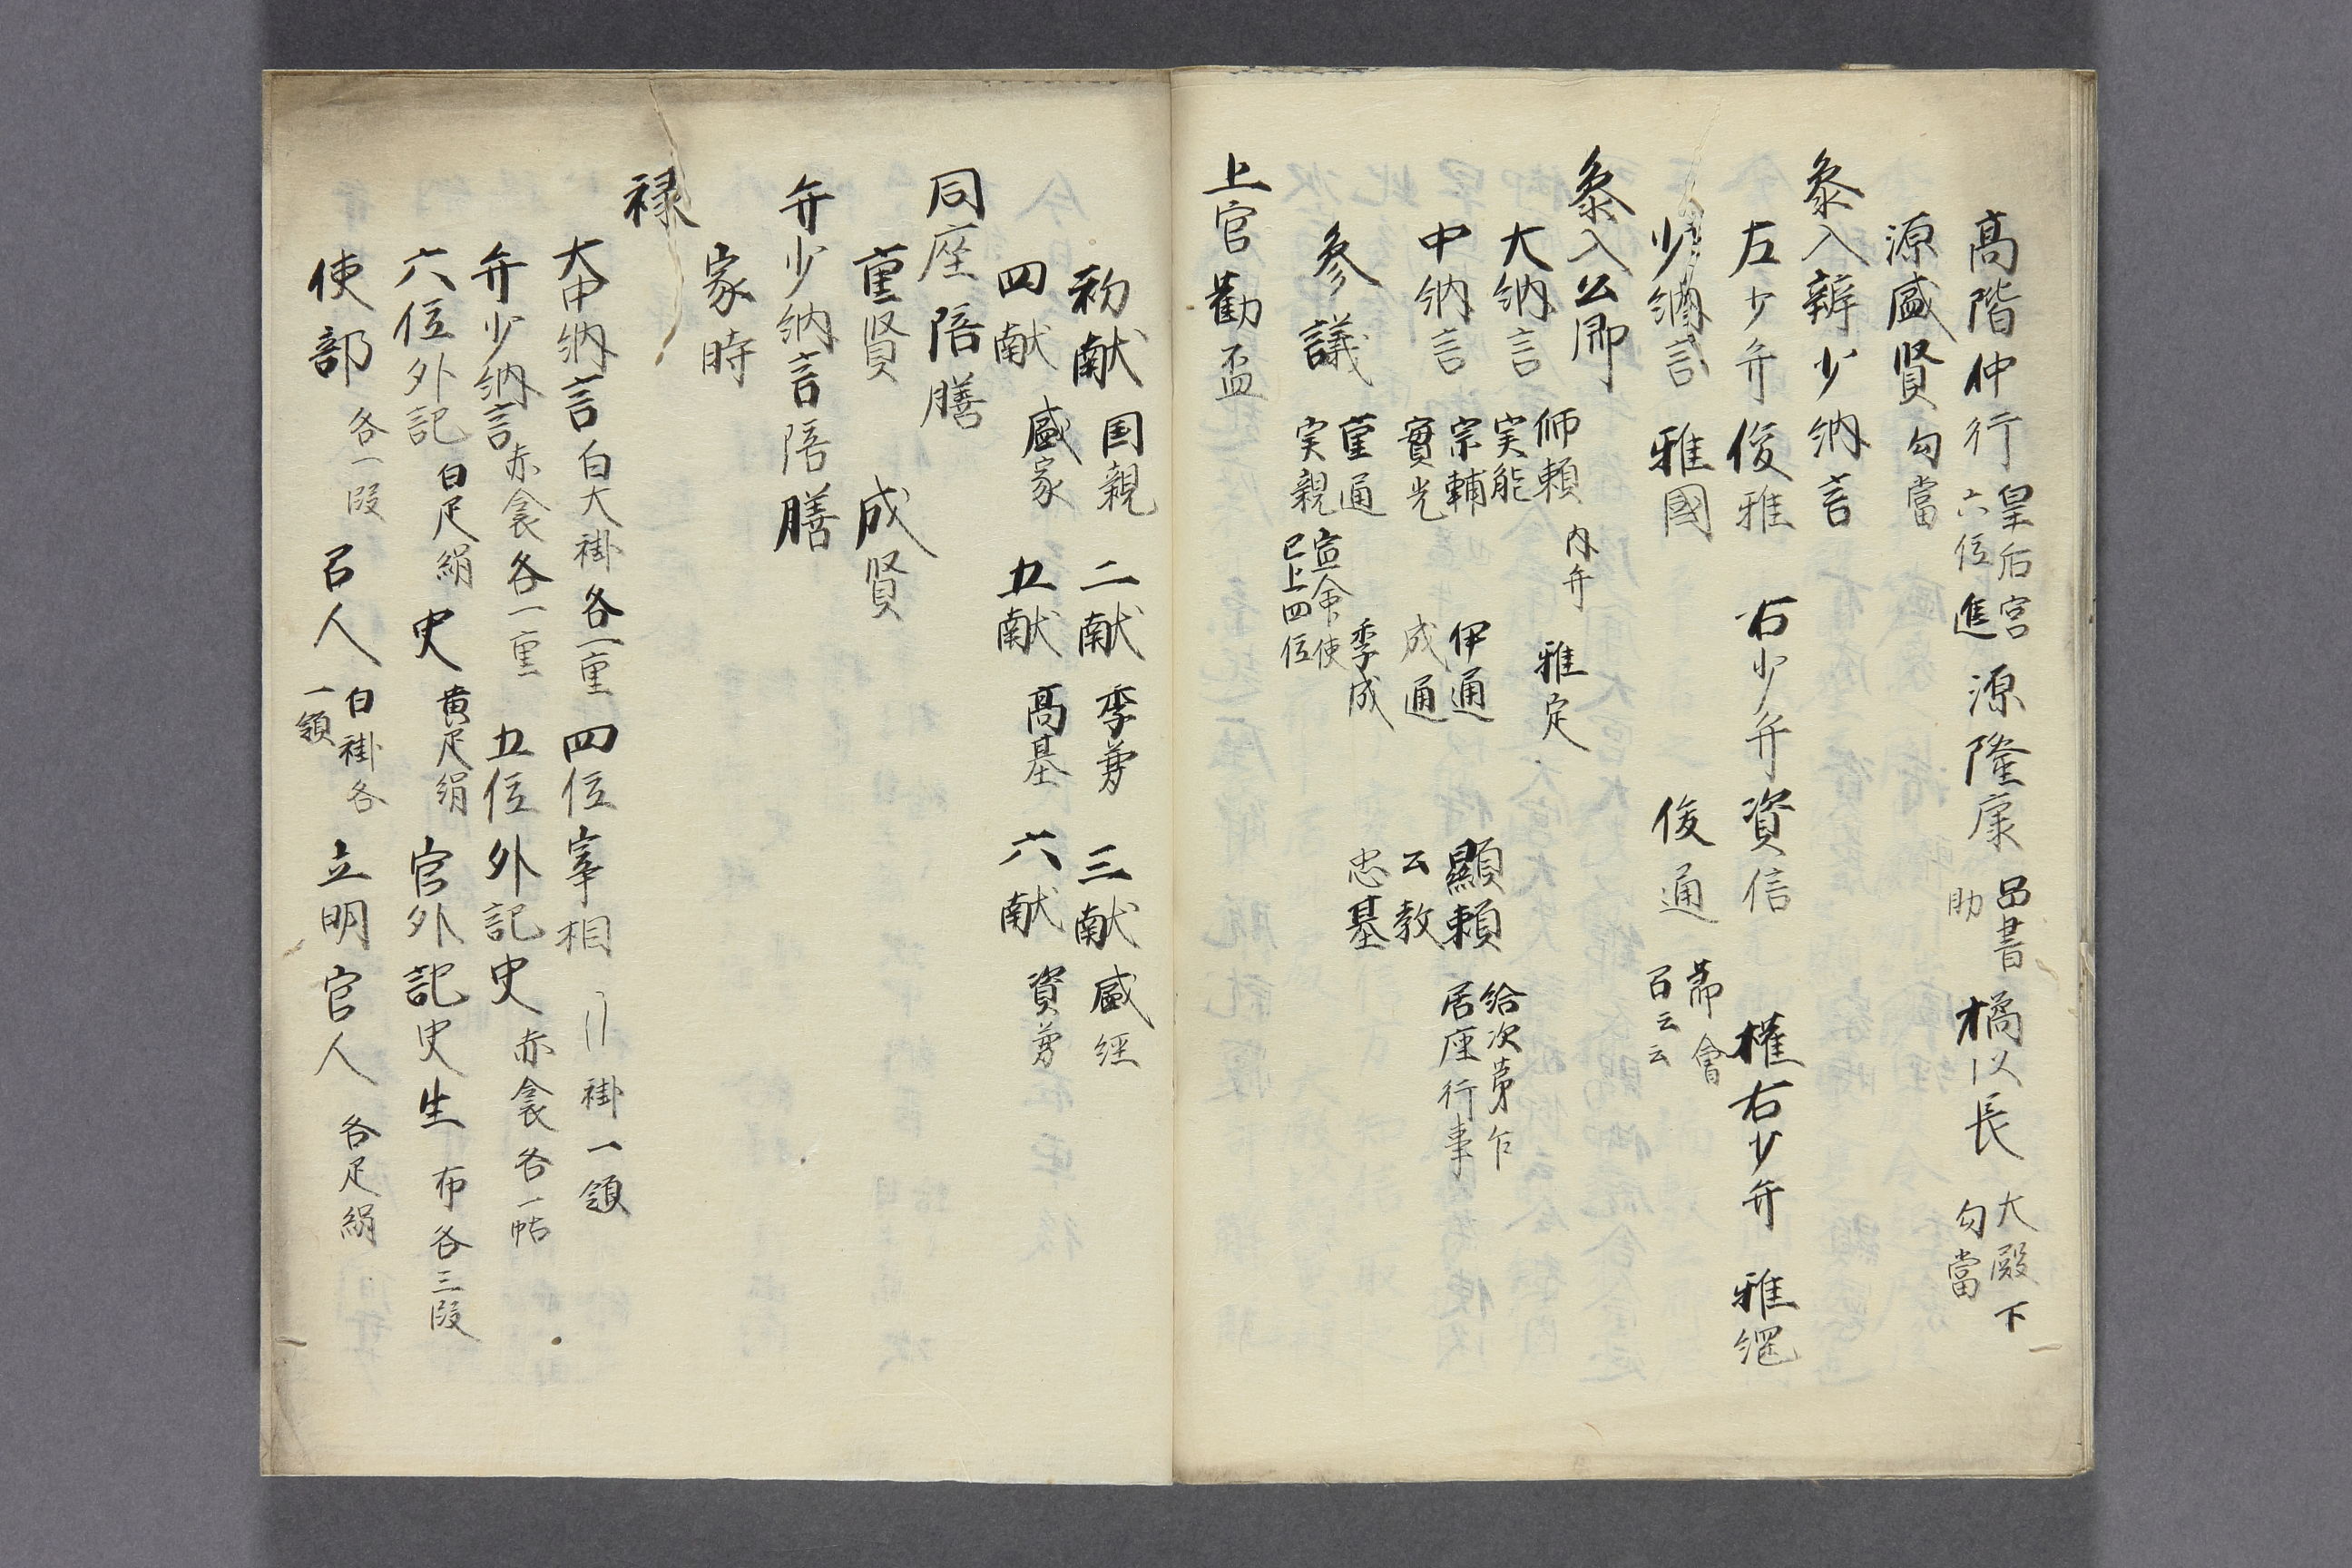 高階仲行 皇后宮 六位進 源隆康 昌書 助 橘以長 大殿下 勾當
源盛賢 勾當
叅入辨少納言
左少弁 俊雅 右少弁 資信 權右少弁 雅綱
少納言 雅國 俊通 節會 召云云
叅入公卿
大納言 師頼 内弁 実能 雅定
中納言 宗輔 實光 伊通 成通 顯頼 給次第乍居座行事 公教
参議 重通 実親 宣命使 已上四位 季成 忠基
上官勸盃
初献 国親 二献 季兼 三献 盛經
四献 盛家 五献 高基 六献 資兼
同座陪膳
重賢 成賢
弁少納言陪膳
家時
禄
大中納言 白大褂各一重 四位宰相 褂一領
弁少納言 赤衾各一重 五位外記史 赤衾各一帖
六位外記 白疋絹 史 黄疋絹 官外記史生 布各三段
使部 各一段 召人 白褂各一領 立明官人 各疋絹